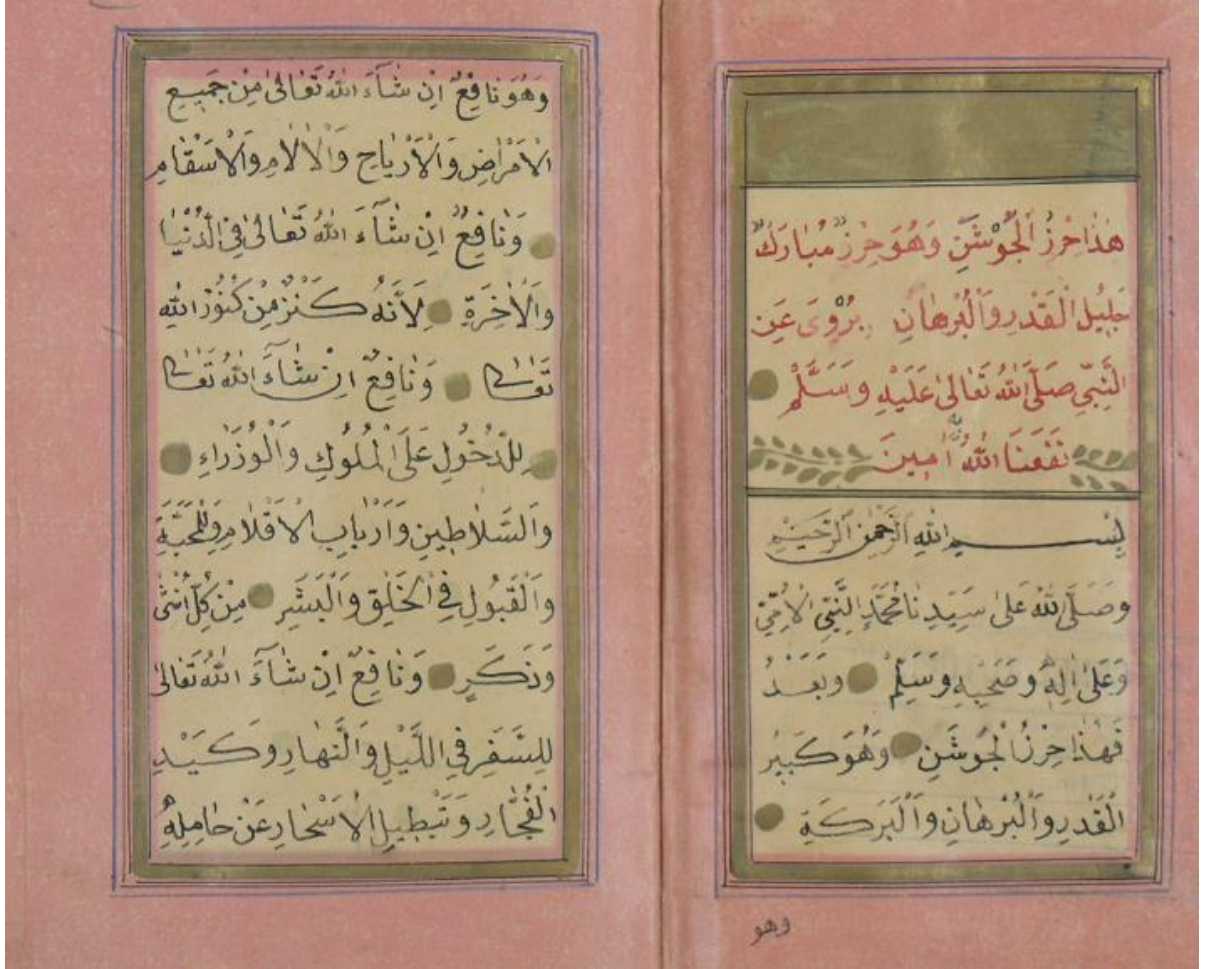 هٰذَا حِرْزُ الْجَوْشَنِ وَهُوَ حِرْزٌ مُبَارَكٌ
جَلِيلُ الْقَدْرِ وَالْبُرْهَانِ يُرْوَى عَنِ
النَّبِيِّ صَلَّى اللهُ تَعَالىٰ عَلَيْهِ وَسَلَّمْ
نَفَعَنَا اللهُ بِهِ اٰمِينَ
بِسْمِ اللهِ الرَّحْمٰنِ الرَّحِيمِ
وَصَلَّى اللهُ عَلىٰ سَيِّدِنَا مُحَمَّدٍ النَّبِيِّ الْاُمِّيِّ
وَعَلىٰ اٰلِهِ وَصَحْبِهِ وَسَلِّمْ وَبَعْدُ
فَهٰذَا حِرْزُ الْجَوْشَنِ وَهُوَ كَبِيرُ
الْقَدْرِ وَالْبُرْهَانِ وَالْبَرَكَةِ
وهو
وَهُوَ نَافِعٌ اِنْ شَآءَ اللهُ تَعَالىٰ مِنْ جَمِيعِ
الْاَمْرَاضِ وَالْاَرْيَاحِ وَالْاٰلَامِ وَالْاَسْقَامِ
وَنَافِعٌ اِنْ شَآءَ اللهُ تَعَالىٰ فِي الدُّنْيَا
وَالْاٰخِرَةِ لِاَنَّهُ كَنْزٌ مِنْ كُنُوزِ اللهِ
تَعَالىٰ وَنَافِعٌ اِنْ شَآءَ اللهُ تَعَالىٰ
لِلدُّخُولِ عَلَى الْمُلُوكِ وَالْوُزَرَاءِ
وَالسَّلَاطِينِ وَاَرْبَابِ الْاَقْلَامِ وَلِلْمَحَبَّةِ
وَالْقَبُولِ فِي الْخَلِقِ وَالْبَشَرِ مِنْ كُلِّ اُنْثىٰ
وَذَكَرٍ وَنَافِعٌ اِنْ شَآءَ اللهُ تَعَالىٰ
لِلسَّفَرِ فِي اللَّيْلِ وَالنَّهَارِ وَكَيْدِ
الْفُجَّارِ وَتَبْطِيلِ الْاَسْحَارِ عَنْ حَامِلِهِ